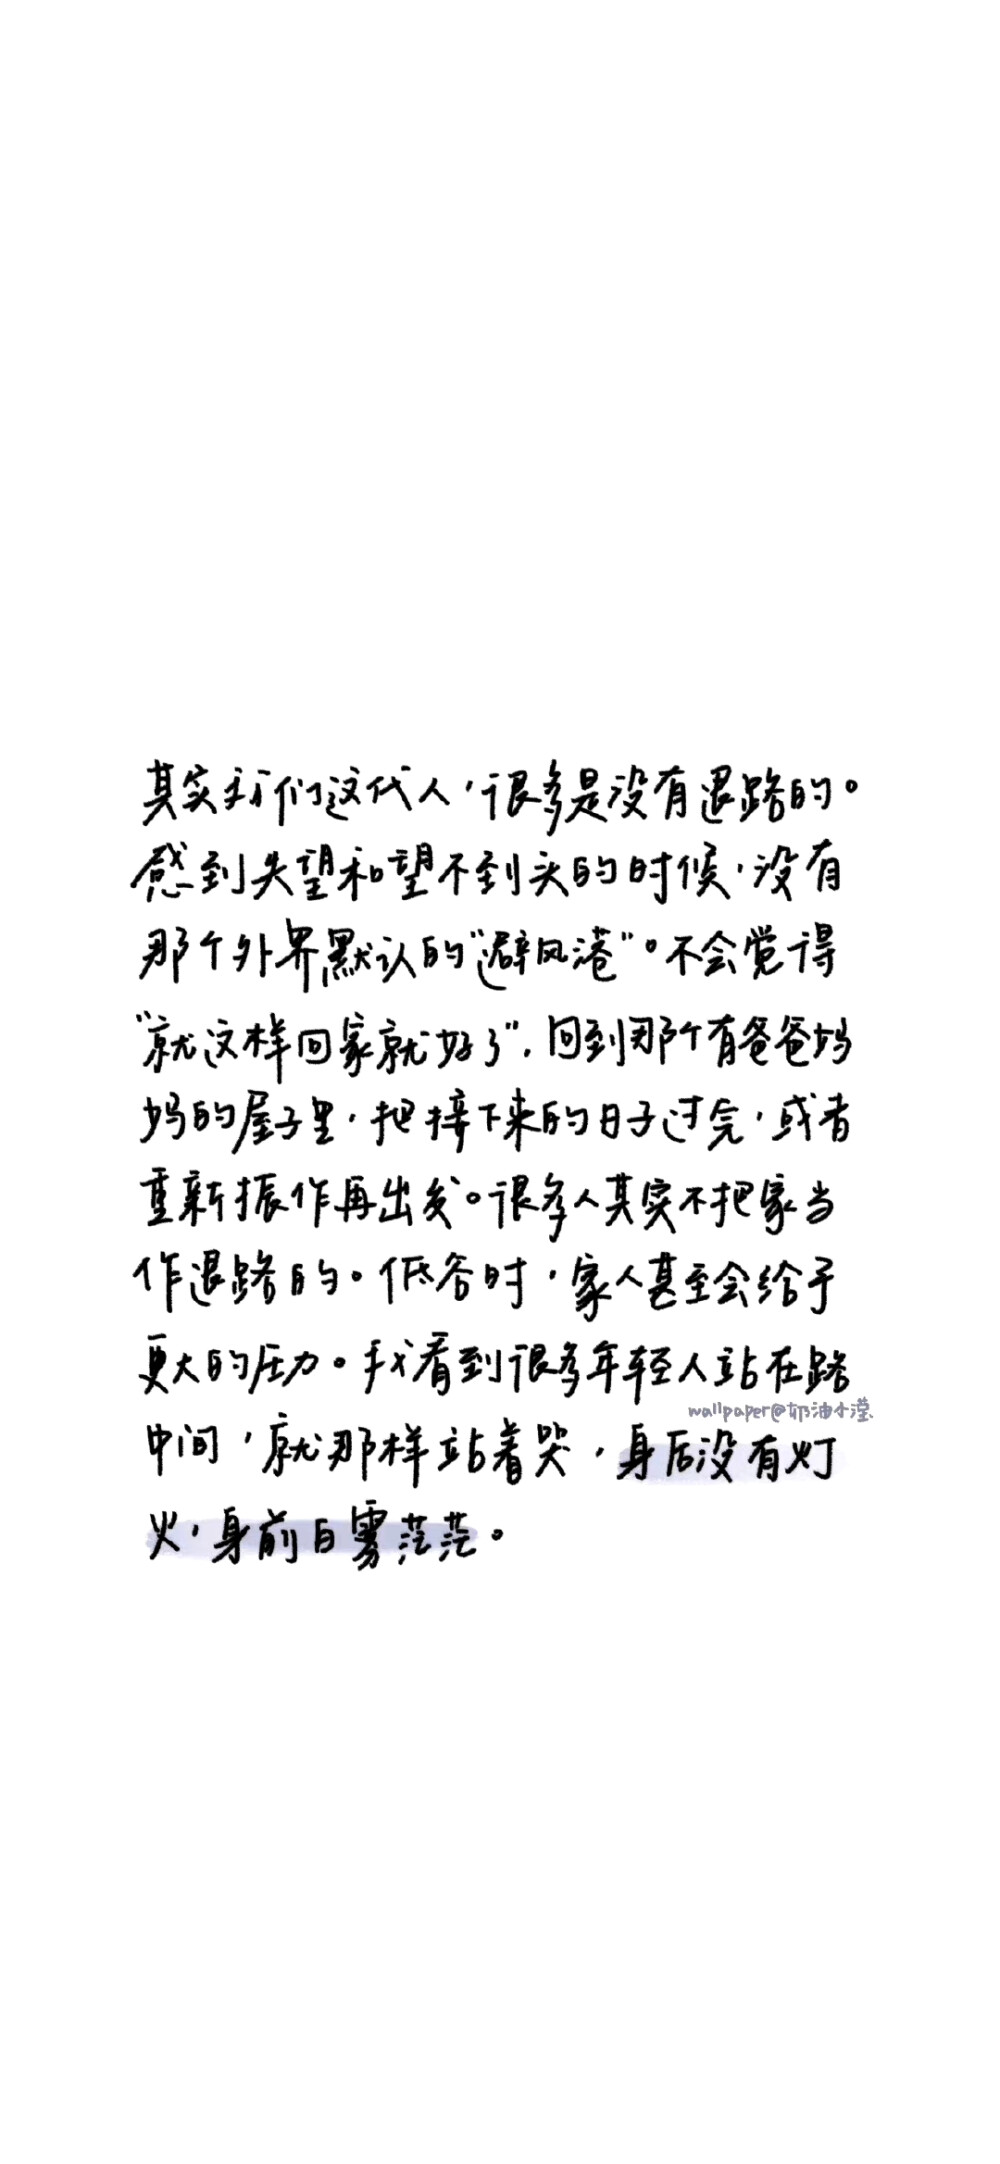 其实我们这代人，很多是没有退路的。
感到失望和望不到头的时候，没有
那个外界默认的“避风港”。不会觉得
“就这样回家就好了”，回到那个有爸爸妈
妈的屋子里，把接下来的日子过完，或者
重新振作再出发。很多人其实不把家当
作退路的。低谷时，家人甚至会给予
更大的压力。我看到很多年轻人站在路
wallpaper@奶油小滢
中间，就那样站着哭，身后没有灯
火，身前白雾茫茫。